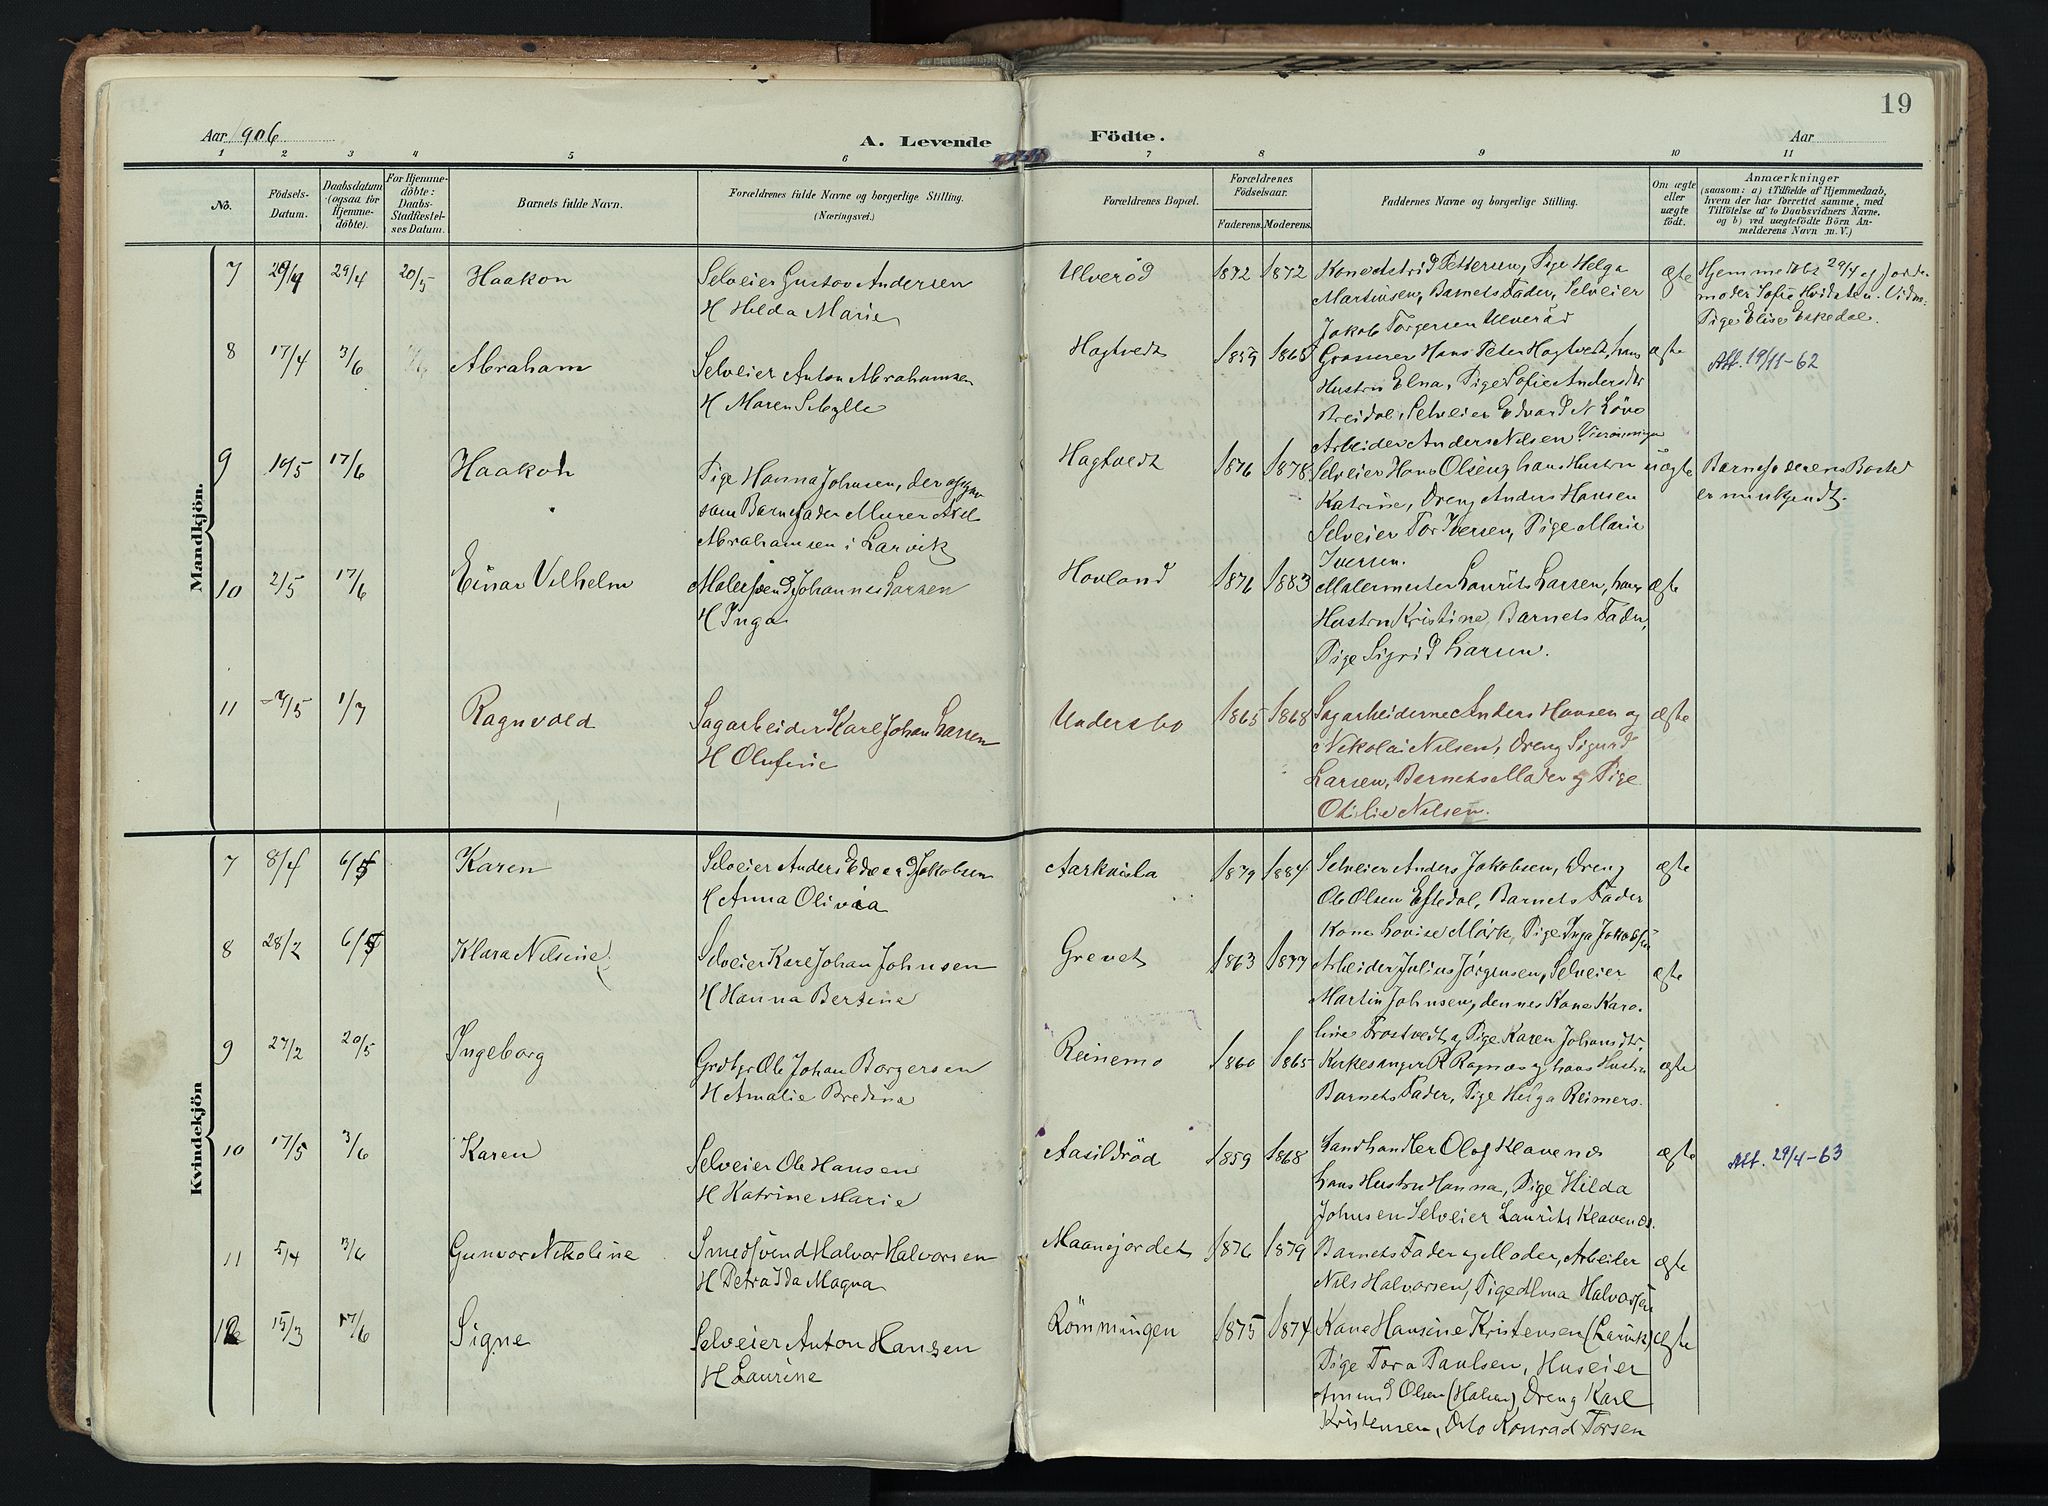 19
Aar 1906
A. Levende
Födte.
Aar
1 2 3 4 5 6 7 8 9 10 11
No.
Födsels-Datum.
Daabsdatum (ogsaa for Hjemmedöbte).
For Hjemmedöbte: Daabs-Stadfæstelses Datum.
Barnets fulde Navn.
Forældrenes fulde Navne og borgerlige Stilling. (Næringsvei.)
Forældrenes Bopæl.
Forældrenes Födselsaar.
Faderens. Moderens.
Faddernes Navne og borgerlige Stilling.
Om ægte eller uægte født.
Anmærkninger
(saasom: a) i Tilfælde af Hjemmedaab,
hvem der har forrettet samme, med
Tilföielse af to Daabsvidners Navne,
og b) ved uægtefödte Börn An-
melderens Navn m. V.)
Mandkjön.
7 29/4 29/4 20/5 Haakon
Selveier Gustav Andersen
H Hilda Marie
Ulveröd 1872 1872
Kone Astrid Pettersen, Pige Helga
Martinsen, Barnets Fader, Selveier
Jakob Torgersen Ulveröd
ægte
Hjemmedöbt 29/4 af Jorde-
moder Sofie Hvidsten. Vidn:
Pige Elise Eskedal.
8 17/4 3/6 Abraham
Selveier Anton Abrahamsen
H Maren Sibylle
Hagtvedt 1859 1865
Grosserer Hans Peter Hagtvedt, hans
Hustru Elna, Pige Sofie Andersdtr
Breidal, Selveier Edvard N Löve
ægte
Att. 19/11-62
9 10/5 17/6 Haakon
Pige Hanna Johnsen, der opgav
som Barnefader Murer Axel
Abrahamsen i Larvik
Hagtvedt 1876 1878
Arbeider Anders Nilsen
Selveier Hans Olsen, hans Hustru
Katrine, Dreng Anders Hansen
Selveier Tor Iversen, Pige Marie
Iversen.
uægte
Barnefaderens Bosted
er ministeriet ubekjendt.
10 2/5 17/6 Einar Vilhelm
Malersvend Johannes Larsen
H Inga
Hovland 1876 1883
Malermester Laurits Larsen, hans
Hustru Kristine, Barnets Fader,
Pige Sigrid Larsen.
ægte
11 7/5 1/7 Ragnvald
Sagarbeider Karl Johan Larsen
H Olufine
Undersbo 1865 1868
Sagarbeiderne Anders Hansen og
Nikolai Nilsen, Dreng Sigurd
Larsen, Barnets Moder og Pige
Otilie Nilsen.
ægte
Kvindekjön
7 8/4 6/5 Karen
Selveier Anders Edvard Jakobsen
H Anna Olivia
Aarkvisla 1879 1884
Selveier Anders Jakobsen, Dreng
Ole Olsen Eftedal, Barnets Fader
Kone Lovise Mörk, Pige Inga Jakobsen
ægte
8 28/2 6/5 Klara Nilsine
Selveier Karl Johan Johnsen
H Hanna Bertine
Grevet 1863 1877
Arbeider Julius Jörgensen, Selveier
Martin Johnsen, dennes Kone Karo-
line Trostvedt og Pige Karen Johansdtr.
ægte
9 27/2 20/5 Ingeborg
Grdbr Ole Johan Borgersen
H Amalie Bredine
Reinemo 1860 1865
Kirkesanger R Ragnæs og hans Hustru
Barnets Fader, Pige Helga Reimers.
ægte
10 17/5 3/6 Karen
Selveier Ole Hansen
H Katrine Marie
Aasildröd 1859 1868
Landhandler Olof Klavenæs
hans Hustru Hanna, Pige Hilda
Johnsen Selveier Laurits Klavenæs.
ægte
Att. 29/4-63
11 5/4 3/6 Gunvor Nikoline
Smedsvend Halvor Halvorsen
H Petra Ida Magna
Maanejordet 1876 1879
Barnets Fader og Moder, Arbeider
Nils Halvorsen, Pige Alma Halvorsen
ægte
12 15/3 17/6 Signe
Selveier Anton Hansen
H Laurine
Römmingen 1875 1874
Kone Hansine Kristensen (Larvik)
Pige Tora Paulsen, Huseier
Amund Olsen (Halsen) Dreng Karl
Kristensen, Oto Konrad Torsen
ægte